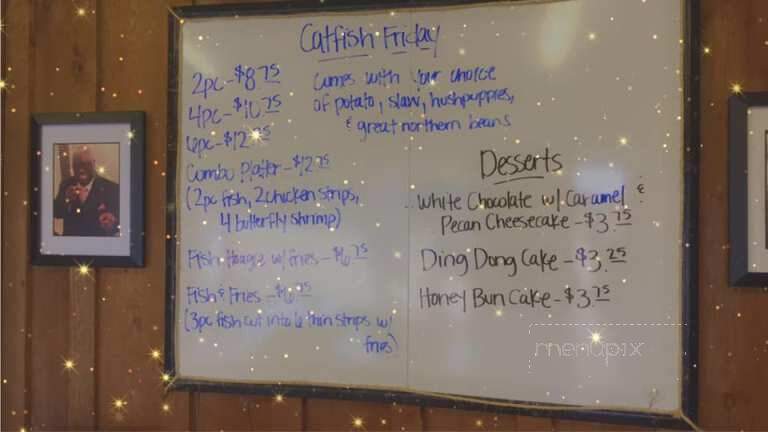 Catfish Friday
2pc - $8.75
4pc - $10.75
6pc - $12.75
Combo Platter - $12.75
(2pc fish, 2 chicken strips,
4 butterfly shrimp)
Fish Hoagie w/ fries - $6.75
Fish & Fries - $6.75
(3pc fish cut into 6 thin strips w/
fries)
Comes with your choice
of potato, slaw, hushpuppies,
& great northern beans
Desserts
White Chocolate w/ Caramel &
Pecan Cheesecake - $3.75
Ding Dong Cake - $3.25
Honey Bun Cake - $3.75
menupix